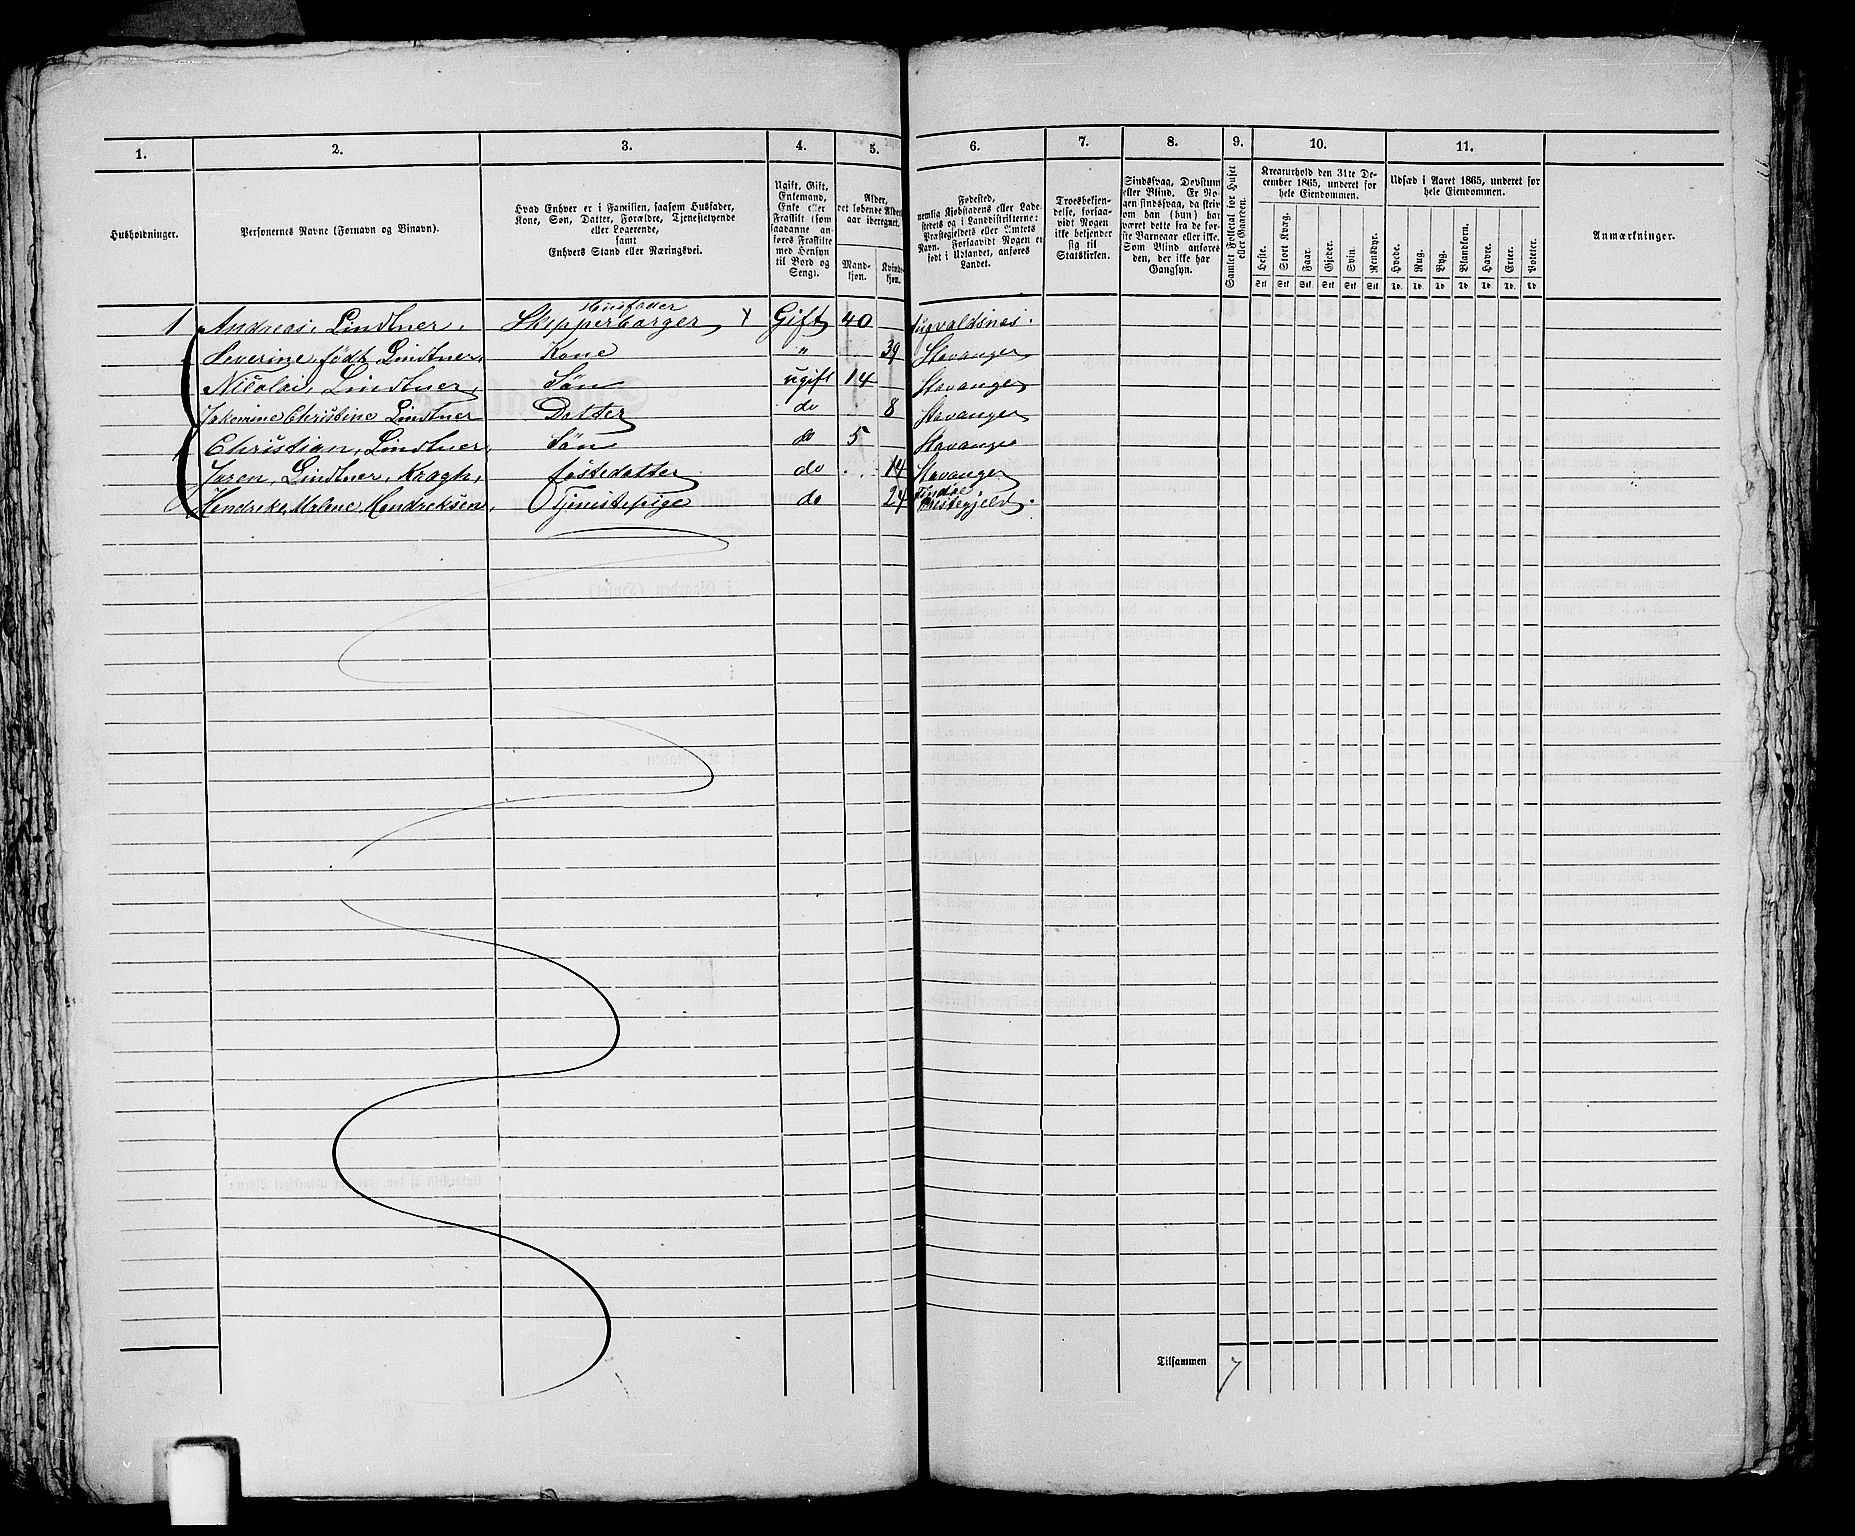 1. 2. 3. 4. 5. 6. 7. 8. 9. 10. 11.
Husholdninger.
Personernes Navne (Fornavn og Binavn).
Hvad Enhver er i Familien, saasom Husfader,
Kone, Søn, Datter, Forældre, Tjenestetyende
eller Logerende,
samt
Enhvers Stand eller Næringsvei.
Ugift, Gift,
Enkemand,
Enke eller
Fraskilt (som
saadanne an-
føres Fraskilte
med Hensyn
til Bord og
Seng).
Alder,
det løbende Alders-
aar iberegnet.
Mand-
kjøn.
Kvinde-
kjøn.
Fødested,
nemlig Kjøbstadens eller Lade-
stedets og i Landdistrikterne:
Præstegjeldets eller Amtets
Navn. Forsaavidt Nogen er
født i Udlandet, anføres
Landet.
Troesbekjen-
delse, forsaa-
vidt Nogen
ikke bekjender
sig til
Statskirken.
Sindssvag, Døvstum
eller Blind. Er No-
gen sindssvag, da skriv
om han (hun) har
været dette fra de før-
ste Barneaar eller ikke.
Som Blind anføres
den, der ikke har
Gangsyn.
Samlet Folketal for Huset
eller Gaarden.
Kreaturhold den 31te De-
cember 1865, underet for
hele Eiendommen.
Heste. Stort Kvæg. Faar. Gjeder. Svin. Rensdyr.
Stk Stk Stk Stk Stk Stk
Udsæd i Aaret 1865, underet for
hele Eiendommen.
Hvede. Rug. Byg. Blandkorn. Havre. Erter. Poteter.
Td. Td. Td. Td. Td. Td. Td.
Anmærkninger.
Husfader
1 Andreas, Lindtner, Skipperborger Gift 40
Severine født Lindtner, Kone " 39 Stavanger
Nicolai, Lindtner, Søn ugift 14 Stavanger
Jakomine Christine Lindtner Datter do 8 Stavanger
Christian, Lindtner, Søn do 5 Stavanger
Lindtner, Kragh, fostedatter do 14 Stavanger
Hendrike Malene Hendreksen, Tjenistepige do 24 Prestegjeld
Tilsammen 7